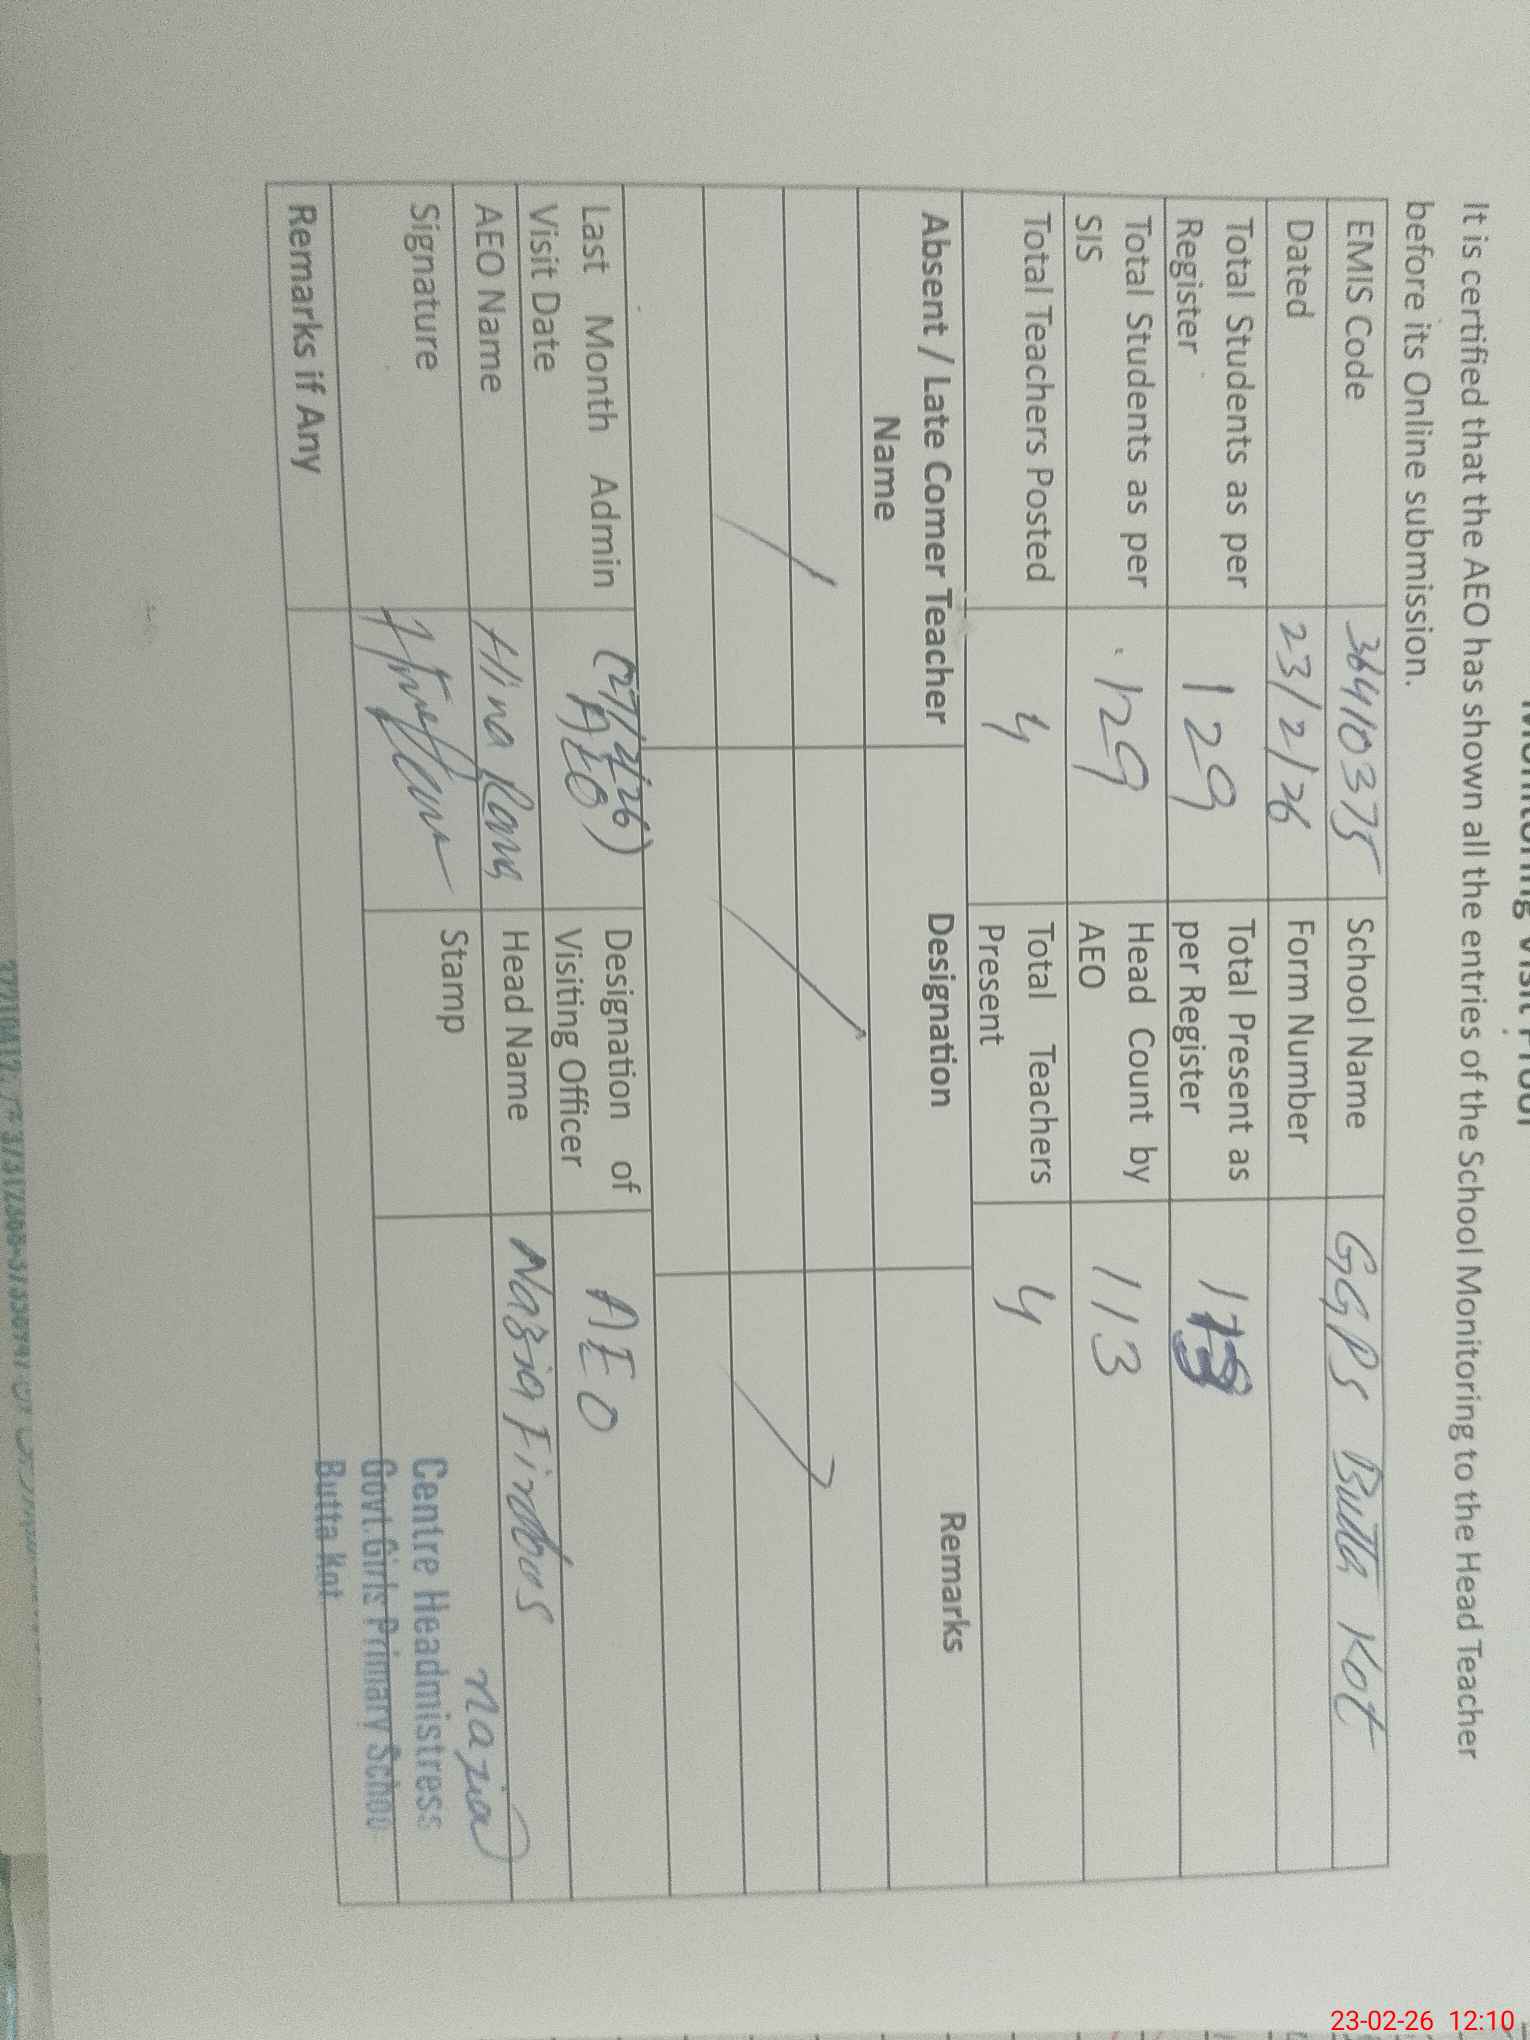 Monitoring Visit Proof
It is certified that the AEO has shown all the entries of the School Monitoring to the Head Teacher
before its Online submission.
EMIS Code 36410375 School Name GGPS Butta Kot
Dated 23/2/26 Form Number
Total Students as per Register 129 Total Present as per Register
Total Students as per SIS 129 Head Count by AEO 113
Total Teachers Posted 4 Total Teachers Present 4
Absent / Late Comer Teacher Name Designation Remarks
Last Month Admin Visit Date AEO Designation of Visiting Officer AEO
AEO Name Hina Rana Head Name Nazia Firdous
Signature Stamp nazia
Centre Headmistress
Govt.Girls Primary Schoo
Butta Kot
Remarks if Any
23-02-26 12:10